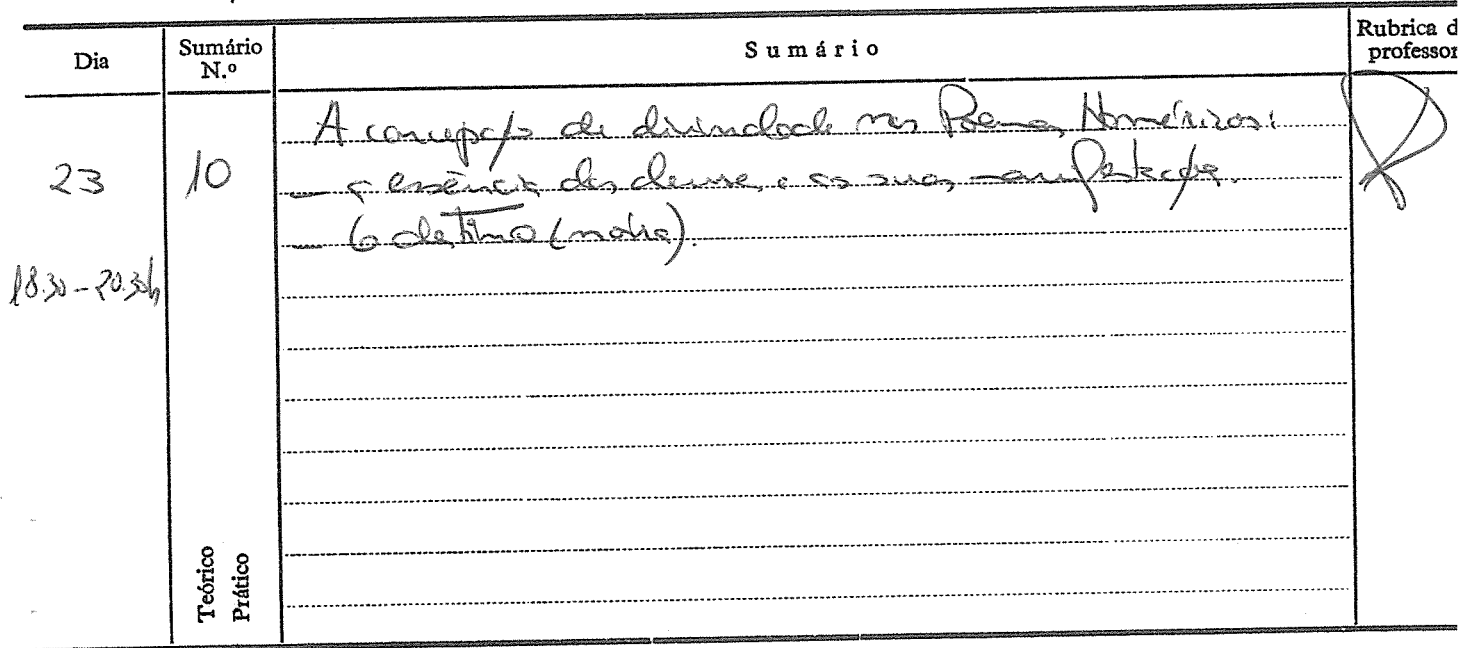 Dia
Sumário
N.º
Sumário
Rubrica d
professor
23
18.30-20.30h
10
A concepção de divindade nos Poemas Homéricos:
— a essência dos deuses e as suas manifestações.
— O destino (moira).
Teórico
Prático